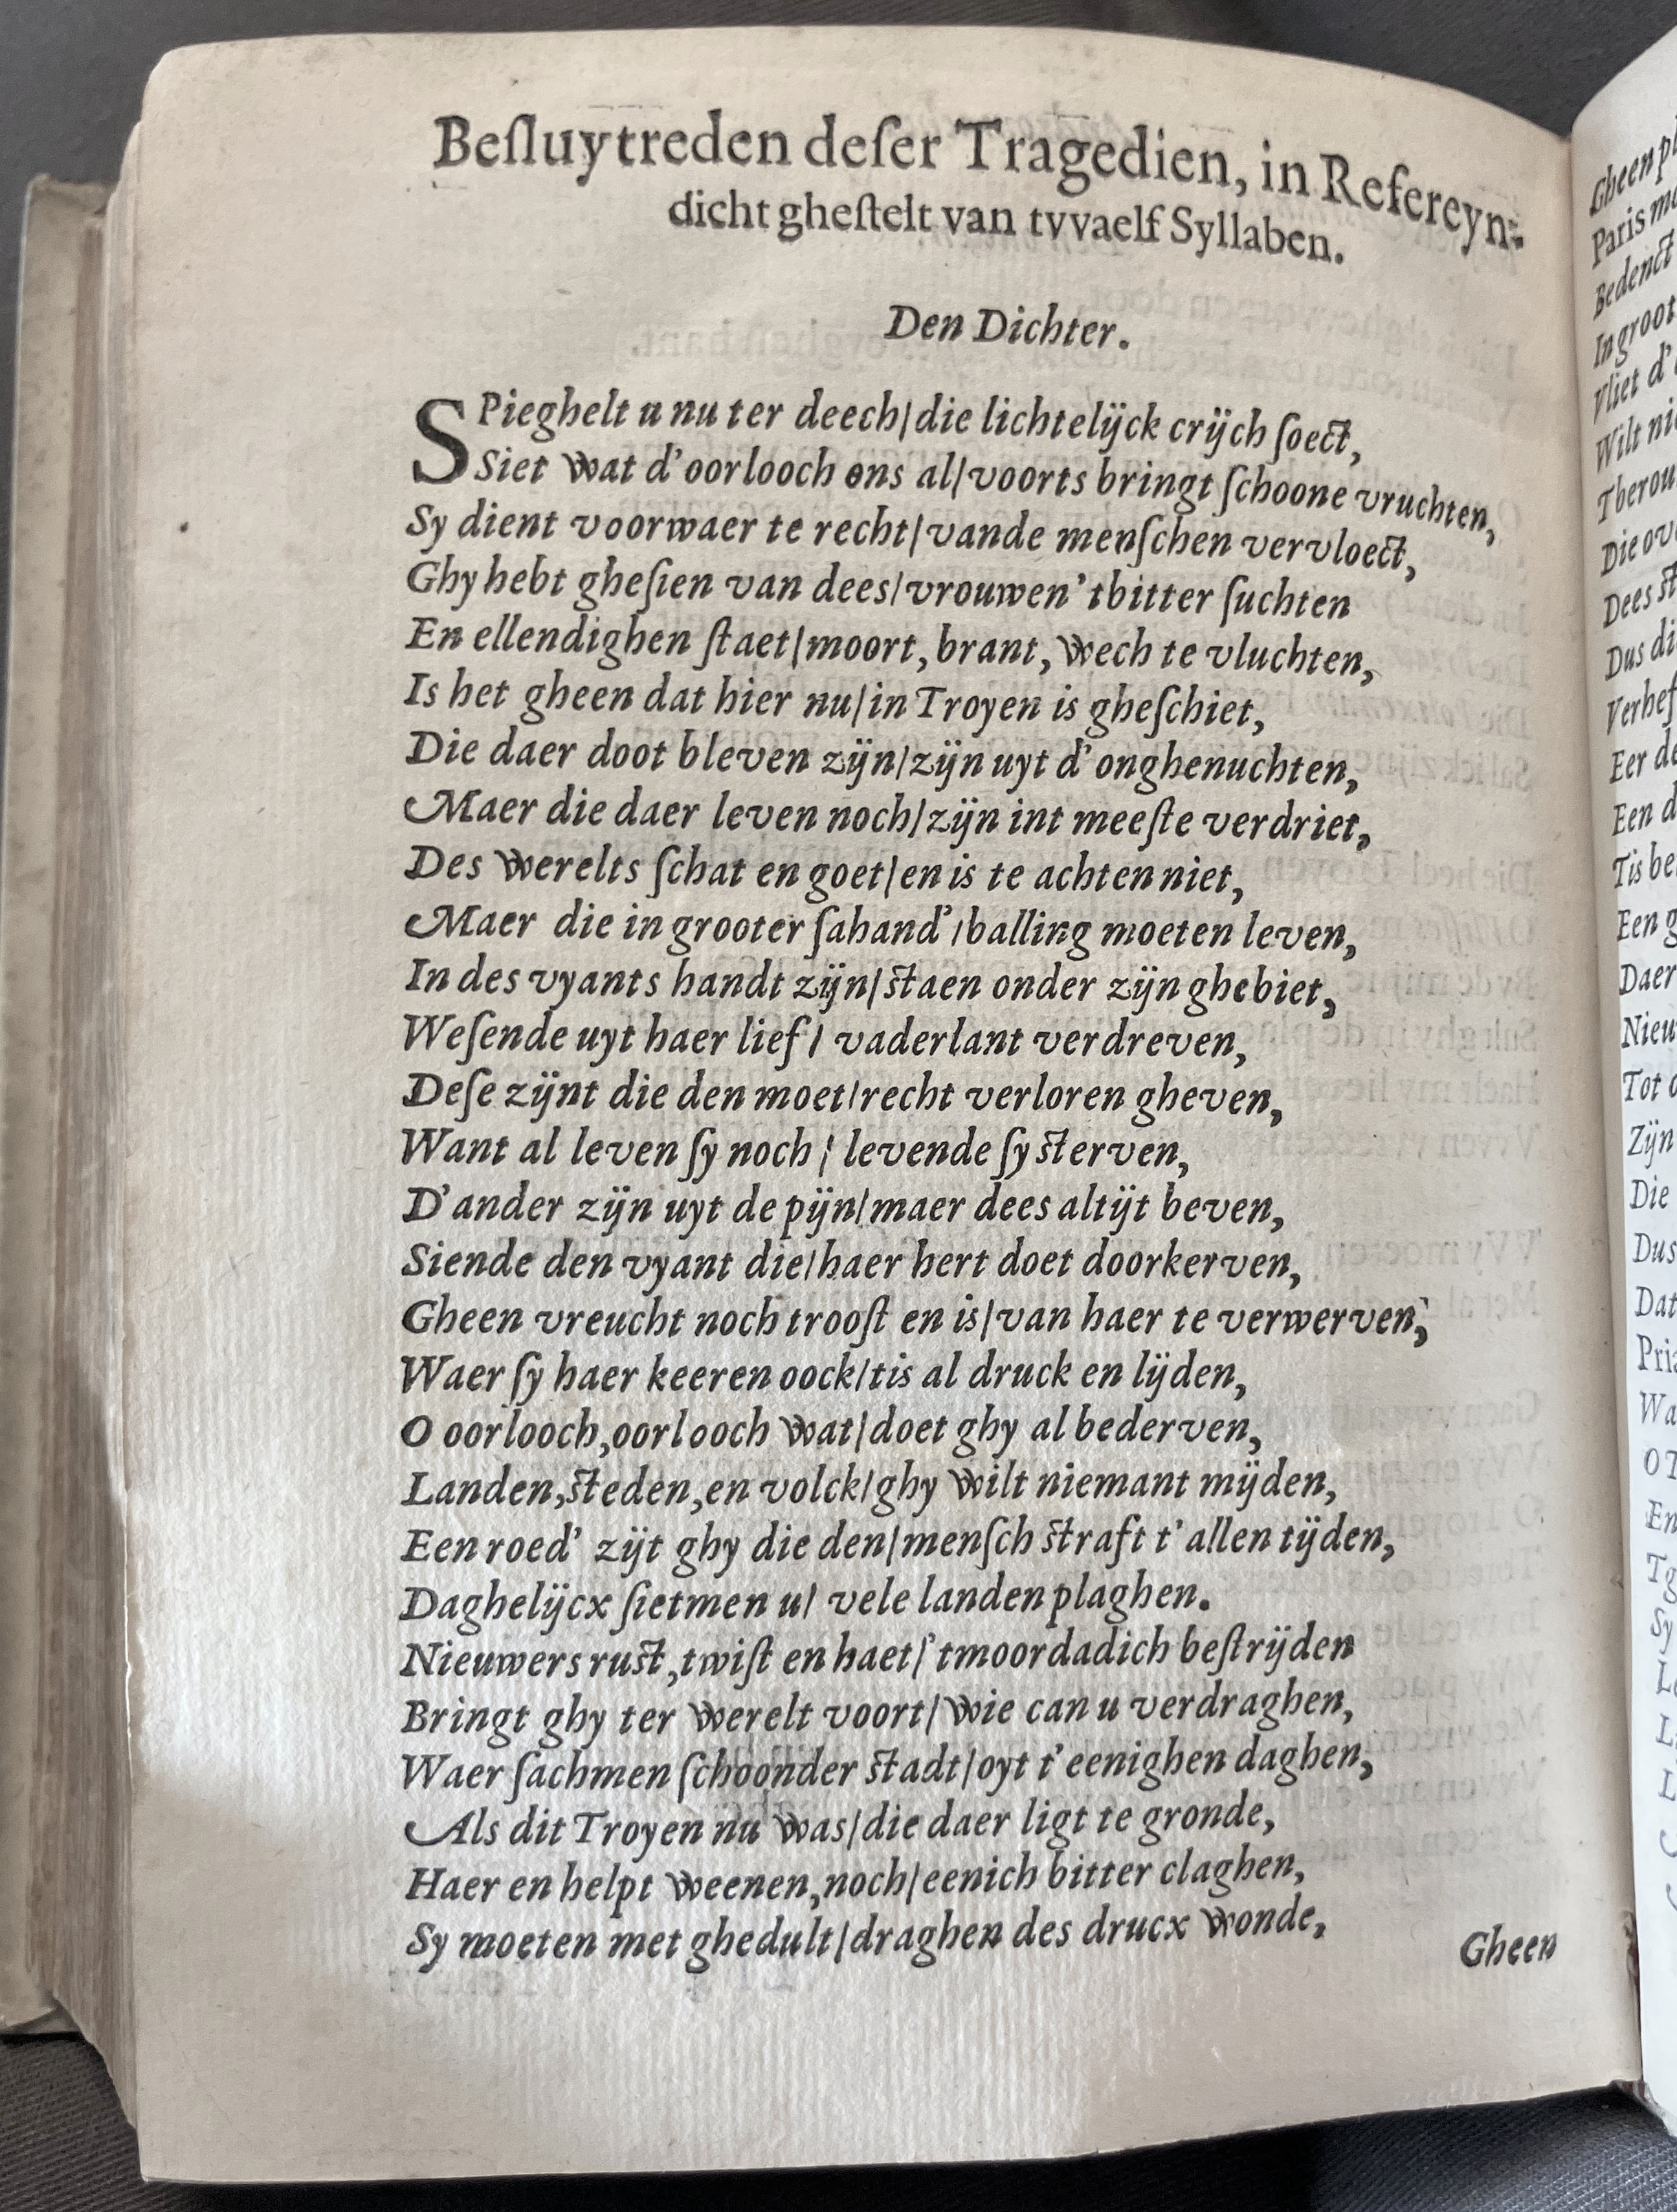 Beſluytreden deſer Tragedien, in Refereyn-
dicht gheſtelt van tvvaelf Syllaben.
Den Dichter.
SPieghelt u nu ter deech/die lichtelijck crijch ſoect,
Siet wat d'oorlooch ons al/voorts bringt ſchoone vruchten,
Sy dient voorwaer te recht/vande menſchen vervloect,
Ghy hebt gheſien van dees/vrouwen'tbitter ſuchten
En ellendighen ſtaet/moort, brant, wech te vluchten,
Is het gheen dat hier nu/in Troyen is gheſchiet,
Die daer doot bleven zijn/zijn uyt d'onghenuchten,
Maer die daer leven noch/zijn int meeſte verdriet,
Des werelts ſchat en goet/en is te achten niet,
Maer die in grooter ſahand'/balling moeten leven,
In des vyants handt zijn/ſtaen onder zijn ghebiet,
Weſende uyt haer lief/ vaderlant verdreven,
Deſe zijnt die den moet/recht verloren gheven,
Want al leven ſy noch/ levende ſy ſterven,
D'ander zijn uyt de pijn/maer dees altijt beven,
Siende den vyant die/haer hert doet doorkerven,
Gheen vreucht noch trooſt en is/van haer te verwerven,
Waer ſy haer keeren oock/tis al druck en lijden,
O oorlooch,oorlooch wat/doet ghy al bederven,
Landen,ſteden,en volck/ghy wilt niemant mijden,
Een roed' zijt ghy die den/menſch ſtraft t'allen tijden,
Daghelijcx ſietmen u/ vele landen plaghen.
Nieuwers ruſt,twiſt en haet/'tmoordadich beſtrijden
Bringt ghy ter werelt voort/wie can u verdraghen,
Waer ſachmen ſchoonder ſtadt/oyt t'eenighen daghen,
Als dit Troyen nu was/die daer ligt te gronde,
Haer en helpt weenen,noch/eenich bitter claghen,
Sy moeten met ghedult/draghen des drucx wonde,
Gheen
Gheen
Paris
Bedenct
In groot
Vliet d'
Wilt
Dees
Dus
Eer
Een
Tis
Een
Daer
Tot
Zijn
Die
Dus
Dat